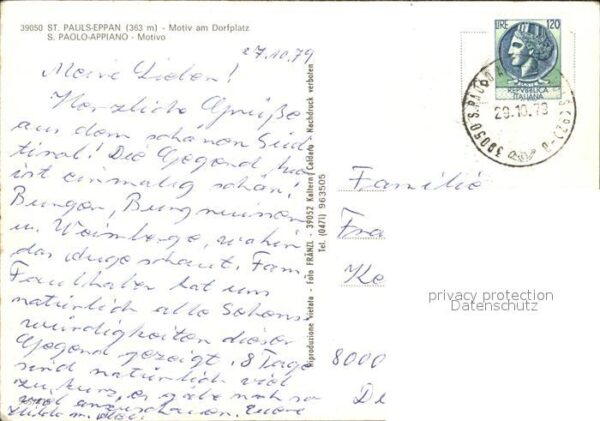 39050 ST. PAULS-EPPAN (363 m) - Motiv am Dorfplatz
S. PAOLO-APPIANO - Motivo
27.10.79
Meine Lieben!
Herzliche Grüße
aus dem schönen Süd
tirol! Die Gegend hier
ist einmalig schön!
Burgen, Burgruinen
u. Weinberge, wohin
das Auge schaut. Fam.
Faulhaber hat uns
natürlich alle Sehens
würdigkeiten dieser
Gegend gezeigt. 8 Tage
sind natürlich viel
zu kurz, es gäbe noch so
viel anzuschauen. Eure
Reproduzione vietata - Foto FRÄNZL - 39052 Kaltern/Caldaro - Nachdruck verboten
Tel. (0471) 963505
LIRE 120
REPVBBLICA
ITALIANA
29.10.79
39050 S. PAOLO
Familie
Fra
Ke
8000
De
privacy protection
Datenschutz